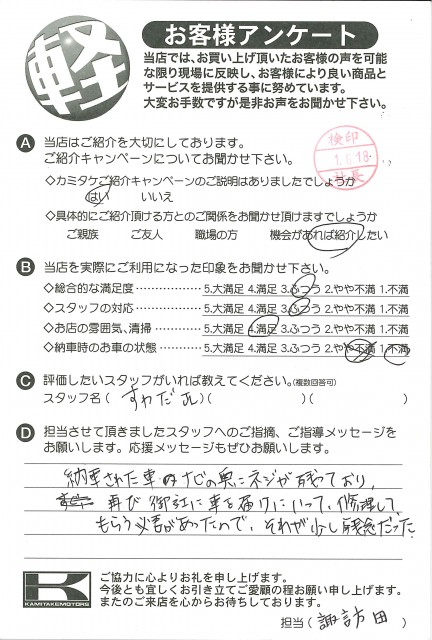 軽
お客様アンケート
当店では、お買い上げ頂いたお客様の声を可能
な限り現場に反映し、お客様により良い商品と
サービスを提供する事に努めています。
大変お手数ですが是非お声をお聞かせ下さい。
検印
1.6.18
A 当店はご紹介を大切にしております。
ご紹介キャンペーンについてお聞かせ下さい。
◇カミタケご紹介キャンペーンのご説明はありましたでしょうか
はい いいえ
◇具体的にご紹介頂ける方とのご関係をお聞かせ頂けますでしょうか
ご親族 ご友人 職場の方 機会があれば紹介したい
B 当店を実際にご利用になった印象をお聞かせ下さい。
◇総合的な満足度 5.大満足 4.満足 3.ふつう 2.やや不満 1.不満
◇スタッフの対応 5.大満足 4.満足 3.ふつう 2.やや不満 1.不満
◇お店の雰囲気、清掃 5.大満足 4.満足 3.ふつう 2.やや不満 1.不満
◇納車時のお車の状態 5.大満足 4.満足 3.ふつう 2.やや不満 1.不満
C 評価したいスタッフがいれば教えてください。(複数回答可)
スタッフ名 ( すわだ )( )( )
D 担当させて頂きましたスタッフへのご指摘、ご指導メッセージを
お願いします。応援メッセージもぜひお願いします。
納車された車のナビの奥にネジが残っており、
再び御社に車を届けにいって、修理して
もらう必要があったので、それが少し残念だった
K
KAMITAKE MOTORS
ご協力に心よりお礼を申し上げます。
今後とも宜しくお引き立てご愛顧の程お願い申し上げます。
またのご来店を心からお待ちしております。
担当 ( 諏訪田 )